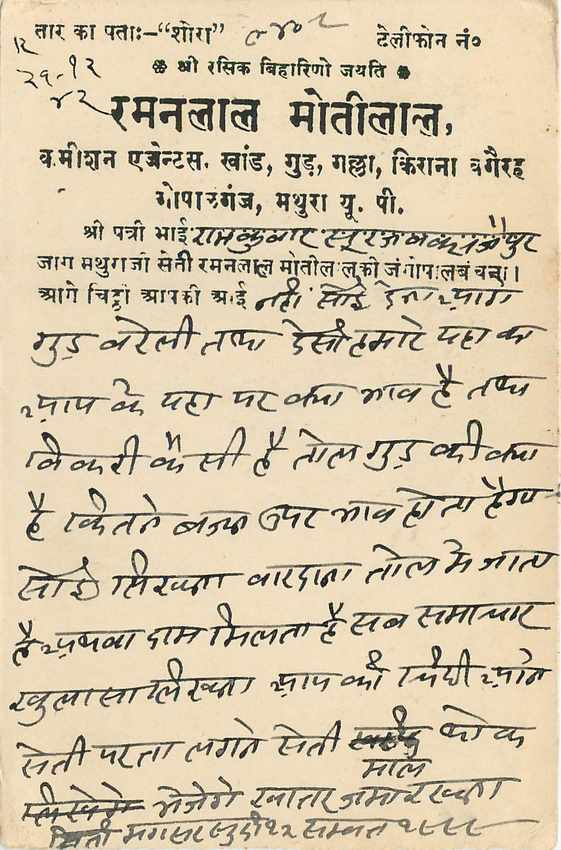 तार का पताः-“शोरा” ९४०२
टेलीफोन नं०
१२
२९-१२
४२
श्री रसिक बिहारिणो जयति
रमनलाल मोतीलाल,
कमीशन एजेन्टस. खांड, गुड़, गल्ला, किराना वगैरह
गोपालगंज, मथुरा यू. पी.
श्री पत्री भाई रामकुवार सूरजबकस जैपुर
जाग मथुराजी सेती रमनलाल मोतीलाल की जैगोपाल बंचना।
आगे चिट्ठी आपकी आई नही सोई देना आगे
गुड़ बरेली तथा देसी हमारे यहा का
आपके यहा पर क्या भाव है तथा
बिकरी कैसी है तोल गुड़ की क्या
है कितने बजन उपर भाव होता हैगा
सोई लिखना बारदाना तोल मे जाता
है अथवा दाम मिलता है सब समाचार
खुलासा लिखना आपकी चिठी आने
सेती परता लगने सेती थोक
माल
भेजेगे खातर जमा रखना
मिती मगसर सुदी १२ सम्वत १९९९